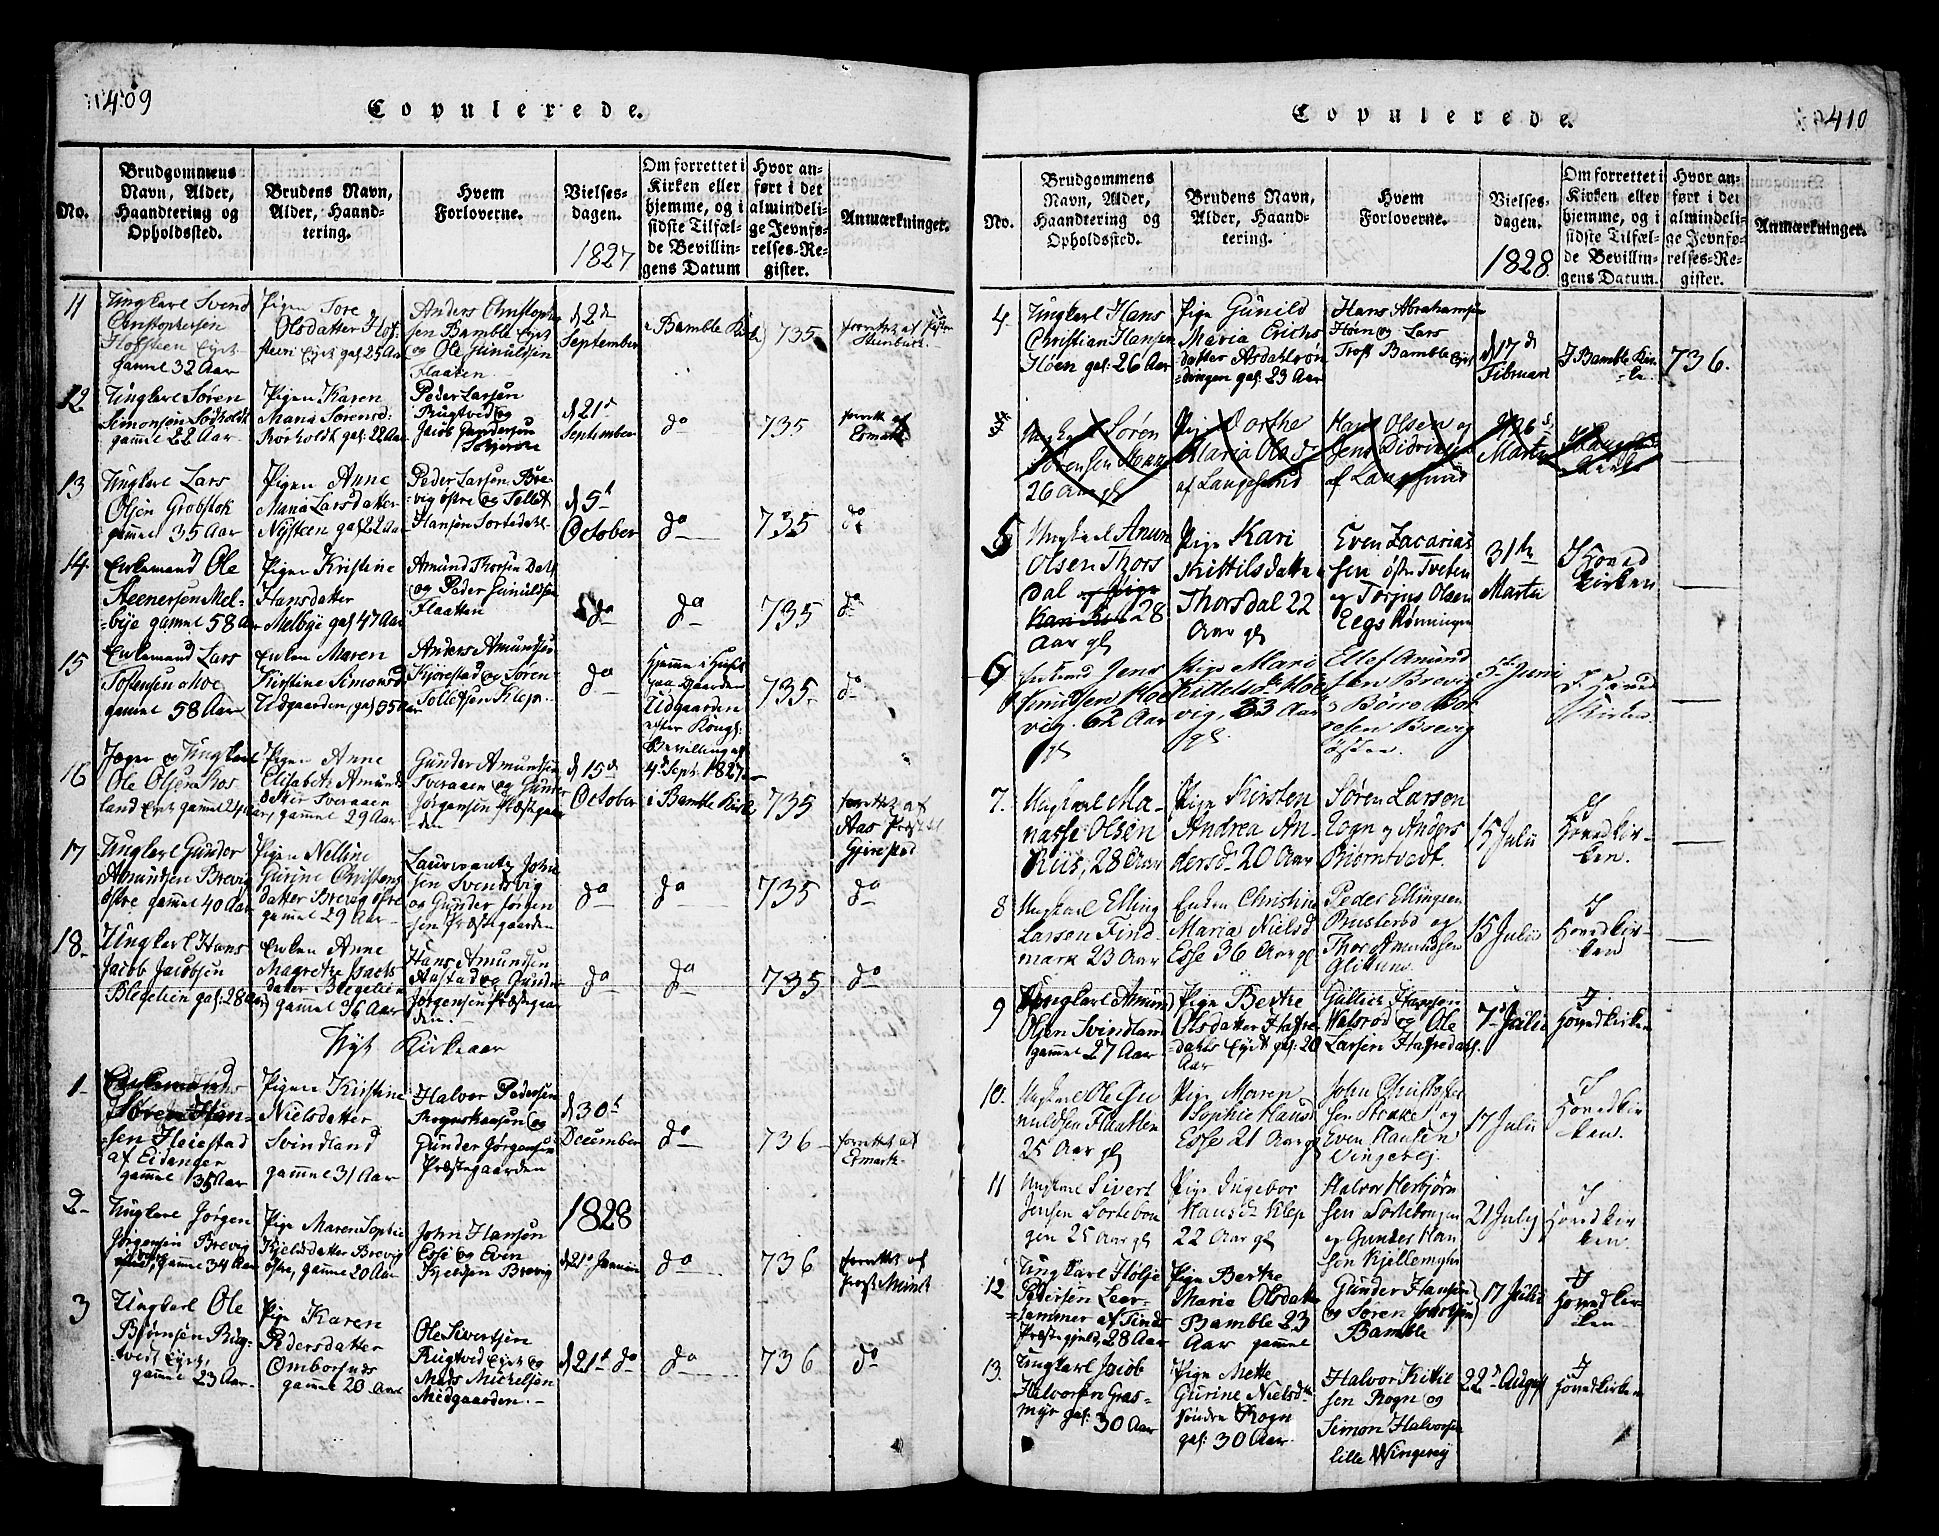 409
Copulerede.
No.
Brudgommens
Navn, Alder,
Haandtering og
Opholdssted.
Brudens Navn,
Alder, Haand-
tering.
Hvem
Forloverne.
Vielses-
dagen.
1827
Om forrettet i
Kirken eller
hjemme, og i
sidste Tilfæl-
de Bevillin-
gens Datum
Hvor an-
ført i det
almindeli-
ge Jevnfø-
relses-Re-
gister.
Anmærkninger.
11
Ungkarl Svend
Christophersen
gamel 32 Aar
Pigen Tore
Olsdatter
gaf: 25 Aar
Anders Christopher
sen Bamble
og Ole Gunuldsen
Flaaten
d 2de
September
i Bamble Kirke
735
forrettet af
12
Ungkarl Søren
Simonsen
gamel 22 Aar
Pigen Karen
Maria Sørensd:
Rorholdt gaf: 22 Aar
Peder Larsen
Rugtved og
Jacob Gundersen
d 21de
September
do
735
forrett af
Esmark
13
Ungkarl Lars
Olsen Grobstok
gamel 35 Aar
Pigen Anne
Maria Larsdatter
Nysteen gaf 22 Aar
Peder Larsen Bre-
vig østre og Tellef
Hansen
d 5te
October
do
735
do
14
Enkemand Ole
Steenersen Mel-
bye gamel 58 Aar
Pigen Kristine
Hansdatter
Melbye gaf 47 Aar
Amund Thorsen
og Peder Gunuldsen
Flaatten
do
do
735
do
15
Enkemand Lars
Tostensen
gamel 58 Aar
Enken Maren
Kirstine Simonsd
Udgaarden gaf 55 Aar
Anders Amundsen
Kjørestad og Søren
Tollefsen Klep
do
Hjemme i Huset
paa Gaarden
Udgaarden
efter Kongl:
Bevilling af
4de Sept: 1827
735
do
16
Jæger og Ungkarl
Ole Olsen Ros
land
Pigen Anne
Elisabeth Amunds
datter Tveraaen
gamel 29 Aar
Gunder Amundsen
Tveraaen og Gunder
Jørgensen Præstegaar
den
d 15de
October
i Bamble Kirke
735
forrettet af
Aas Præst til
Gjerestad
17
Ungkarl Gunder
Amundsen Brevig
østre gamel 40 Aar
Pigen Nelline
Gurine Christens
datter Brevig østre
gamel 29 Aar
Laurwantz John
sen Svendsvig
og Gunder Jørgen
sen Præstegaarden
do
do
735
do
18
Ungkarl Hans
Jacob Jacobsen
Blegelien gaf: 28 Aar
Enken Anne
Magrethe Isacks
datter Blegelien
gamel 36 Aar
Hans Amundsen
Aastad og Gunder
Jørgensen Præstegaar
den.
do
do
735
do
Nyt Kirkeaar
1
Enkemand
Søren Han-
sen Heiestad
af Eidanger
gamel 35 Aar
Pigen Kirstine
Nielsdatter
Svindland
gamel 31 Aar
Halvor Pedersen
og
Gunder Jørgensen
Præstegaarden
d 30te
December
do
736
forrettet af
Esmark
2
Ungkarl Jørgen
Jørgensen Brevig
østre, gamel 34 Aar
Pige Maren Sophie
Kjelsdatter Brevig
østre, gamel 20 Aar
John Hansen
Esse og Even
Kjelsen Brevig
1828
d 21de Januari
do
736
forrettet af
Præst Münst
3
Ungkarl Ole
Bjørnsen Rug-
tvedt
gamel 23 Aar
Pige Karen
Pedersdatter
Omborsnes
gamel 20 Aar
Ole Sivertsen
Rugtved og
Mads Mickelsen
Midgaarden.
d 21de do
do
736
do
410
Copulerede.
No.
Brudgommens
Navn, Alder,
Haandtering og
Opholdssted.
Brudens Navn,
Alder, Haand-
tering.
Hvem
Forloverne.
Vielses-
dagen.
1828
Om forrettet i
Kirken eller
hjemme, og i
sidste Tilfæl-
de Bevillin-
gens Datum.
Hvor an-
ført i det
almindeli-
ge Jevnfø-
relses-Re-
gister.
Anmærkninger.
4
Ungkarl Hans
Christian Hansen
Høen gaf: 26 Aar
Pige Gunild
Maria Erichs
datter
gaf: 23 Aar
Hans Abrahamsen
Høen og Lars
Trosl Bamble
d 17de
Februari
I Bamble Kir-
ke
736.
Ungkarl Søren
Sørensen
26 Aar gl
Pige Dorthe
Maria Olsd
af Langesund
Hans Olsen og
Jens Didrichsen
af Langesund
26de
Martii
5
Ungkarl Anun
Olsen Thors
dal
28
Aar gl
Pige Kari
Kittilsdatter
Thorsdal 22
Aar gl
Even Zacarias
sen østre Tveten
og Torjus Olsen
Eegs Rønningen
31te
Martii
I Hoved
kirken
6
Jens
Knudsen
vig. 62 Aar
gl
Pige Mari
Kittelsd
vig, 33 Aar
gl
Ellef Amund
sen Brevig
5te Juni
I Hoved
kirken
7.
Ungkarl Ma-
nasse Olsen
Riis, 28 Aar
Pige Kirsten
Andrea An-
dersd: 20 Aar
Søren Larsen
Rogn og Anders
Biørntvedt
15 Julii
I
Hovedkir-
ken.
8
Ungkarl Elling
Larsen Find-
mark 23 Aar
Enken Christine
Maria Nielsd
Esse 36 Aar gl
Peder Ellingsen
Prusterød og
Thor Amundsen
15 Julii
I
Hovedkir-
ken
9
Ungkarl Amund
Olsen Svindland
gamel 27 Aar
Pige Berthe
Olsdatter Hafre-
dahls gaf: 20
Aar
Gullick Hansen
Walsrød og Ole
Larsen Hafredahl
7de Julii
I
Hovedkirken
10.
Ungkarl Ole Gu
nuldsen Flaatten
25 Aar gl
Pige Maren
Sophie Hansd
Esse 21 Aar gl
John Christofer
sen og
Even Hansen
Vingerej.
17 Julii
I
Hovedkir
ken.
11
Ungkarl Sivert
Jensen Tortebou
gen 25 Aar gl
Pige Ingebor
Hansd: Klep
22 Aar gl
Halvor Herbjørn
sen
og Gunder Han
sen Kjellemyhr
21 Julij
I
Hovedkir
ken.
12
Ungkarl Hølje
Pedersen Leer-
stammer af Tinds
Præstegjeld, 28 Aar
Pige Berthe
Maria Olsdatter
Bamble 23
Aar gamel
Gunder Hansen
og Søren
Bamble
17 Julii
I
Hovedkir-
ken
13.
Ungkarl Jacob
Halvorsen Gras-
myr gaf: 30 Aar
Pige Mette
Gurine Nielsd
søndre Rogn
gaf: 30 Aar
Halvor Kittil
sen Rogn og
Simon Halvorsen
lille Wingerej
22de August
I
Hovedkirken